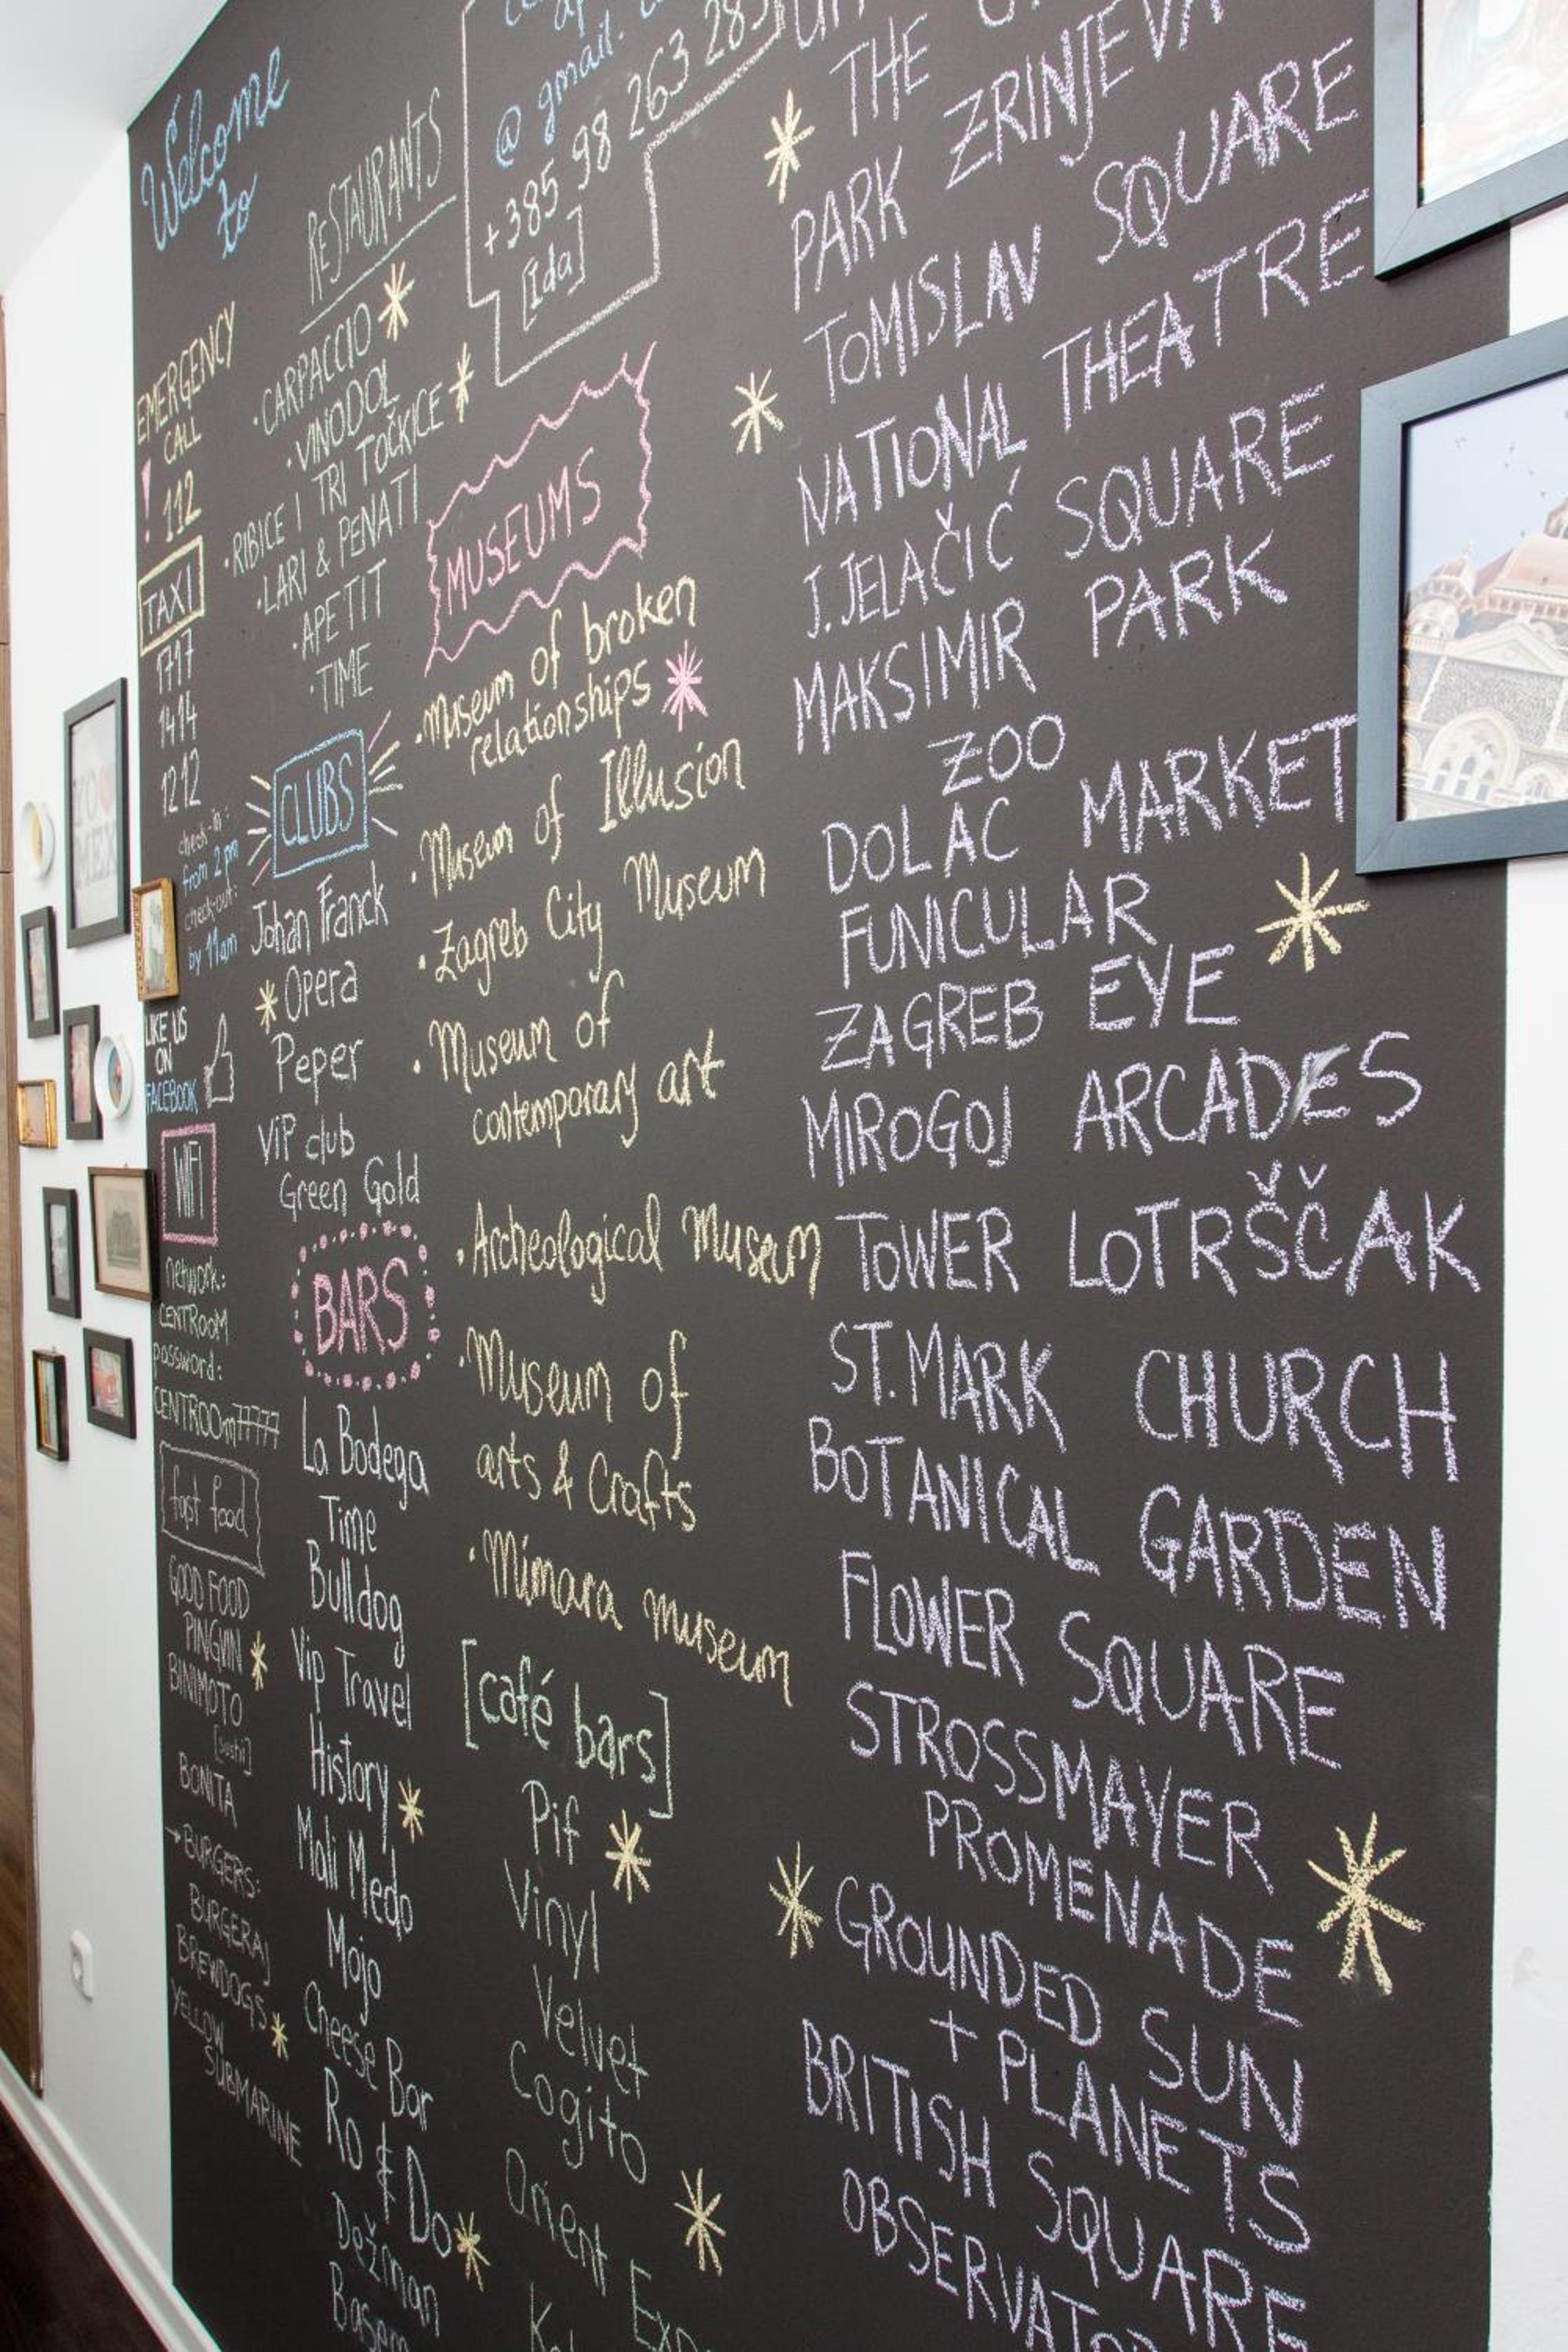 Welcome
to
EMERGENCY
CALL
! 112
TAXI
1717
1414
1212
check-in:
from 2 pm
check-out:
by 11am
LIKE US
ON
FACEBOOK
WIFI
network:
CENTROOM
password:
CENTROOm77777
fast food
GOOD FOOD
PINGVIN
BINIMOTO
[sushi]
BONITA
→BURGERS:
BURGERAJ
BREWDOGS
YELLOW
SUBMARINE
RESTAURANTS
·CARPACCIO
·VINODOL
·RIBICE I TRI TOČKICE
·LARI & PENATI
·APETIT
·TIME
CLUBS
Johan Franck
Opera
Peper
ViP club
Green Gold
BARS
La Bodega
Time
Bulldog
Vip Travel
History
Mali Medo
Mojo
Cheese Bar
Ro & Do
Dežman
@ gmail.
+385 98 263 283
[Ida]
MUSEUMS
·Museum of broken
relationships
·Museum of Illusion
·Zagreb City Museum
·Museum of
contemporary art
·Archeological Museum
·Museum of
arts & Crafts
·Mimara museum
[café bars]
Pif
Vinyl
Velvet
Cogito
Orient
THE
PARK ZRINJEVA
TOMISLAV SQUARE
NATIONAL THEATRE
J.JELAČIĆ SQUARE
MAKSIMIR PARK
ZOO
DOLAC MARKET
FUNICULAR
ZAGREB EYE
MIROGOJ ARCADES
TOWER LOTRŠČAK
ST.MARK CHURCH
BOTANICAL GARDEN
FLOWER SQUARE
STROSSMAYER
PROMENADE
GROUNDED SUN
+ PLANETS
BRITISH SQUARE
OBSERVATO